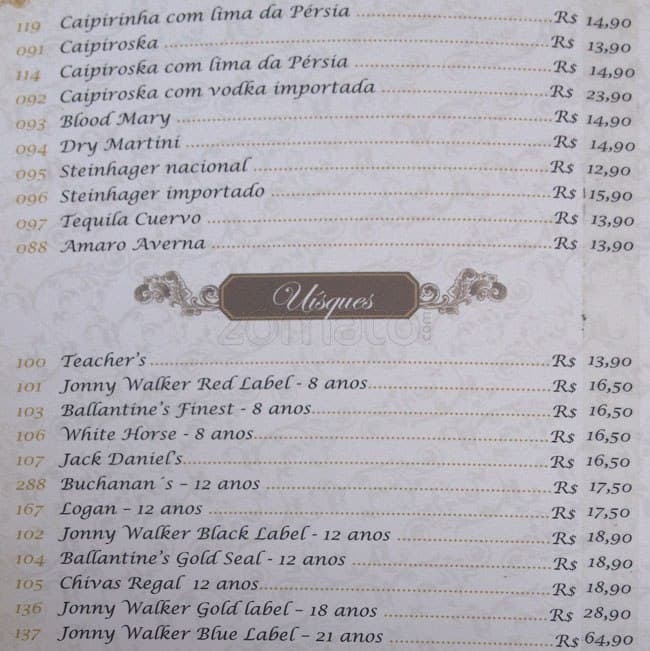 119 Caipirinha com lima da Pérsia R$ 14,90
091 Caipiroska R$ 13,90
114 Caipiroska com lima da Pérsia R$ 14,90
092 Caipiroska com vodka importada R$ 23,90
093 Blood Mary R$ 14,90
094 Dry Martini R$ 14,90
095 Steinhager nacional R$ 12,90
096 Steinhager importado R$ 15,90
097 Tequila Cuervo R$ 13,90
088 Amaro Averna R$ 13,90
Uísques
zomato.com
100 Teacher's R$ 13,90
101 Jonny Walker Red Label - 8 anos R$ 16,50
103 Ballantine's Finest - 8 anos R$ 16,50
106 White Horse - 8 anos R$ 16,50
107 Jack Daniel's R$ 16,50
288 Buchanan´s – 12 anos R$ 17,50
167 Logan – 12 anos R$ 17,50
102 Jonny Walker Black Label - 12 anos R$ 18,90
104 Ballantine's Gold Seal - 12 anos R$ 18,90
105 Chivas Regal 12 anos R$ 18,90
136 Jonny Walker Gold label – 18 anos R$ 28,90
137 Jonny Walker Blue Label – 21 anos R$ 64,90